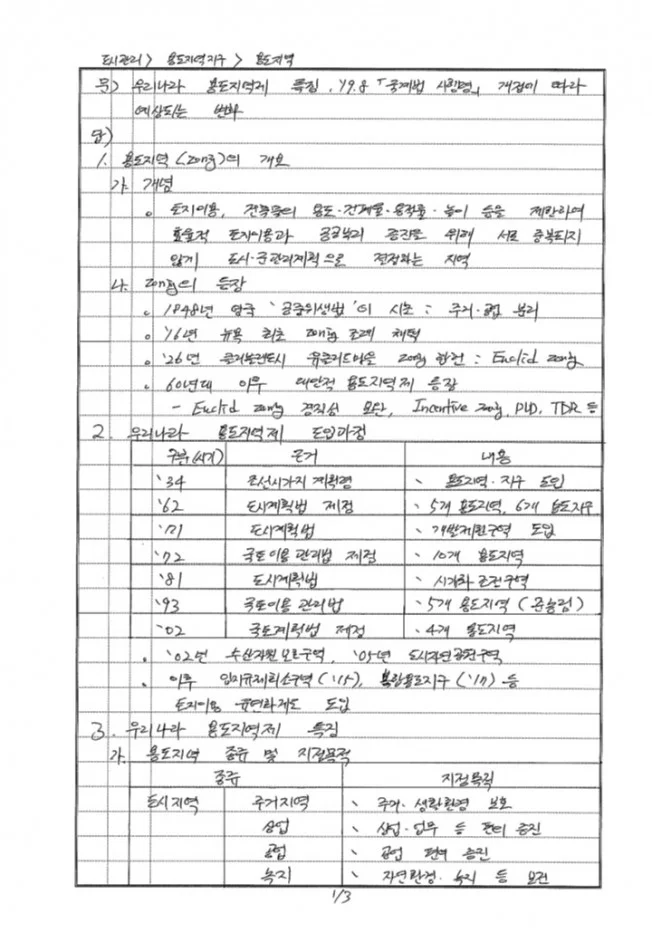 도시관리 > 용도지역지구 > 용도지역
문) 우리나라 용도지역제 특징, '19.8 「국계법 시행령」 개정에 따라
예상되는 변화
답)
1. 용도지역 (Zoning)의 개요
가. 개념
o 토지이용, 건축물의 용도·건폐율·용적률·높이 등을 제한하여
효율적 토지이용과 공공복리 증진을 위해 서로 중복되지
않게 도시·군관리계획으로 결정하는 지역
나. zoning의 등장
o 1848년 영국 '공중위생법'이 시초 : 주거·공업 분리
o '16년 뉴욕 최초 zoning 조례 채택
o '26년 유클리드마을 zoning 합헌 : Euclid zoning
o 60년대 이후 대안적 용도지역제 등장
- Euclid zoning 경직성 보완, Incentive zoning, PUD, TDR 등
2. 우리나라 용도지역제 도입과정
구분(시기) 근거 내용
'34 조선시가지 계획령 · 용도지역·지구 도입
'62 도시계획법 제정 · 5개 용도지역, 6개 용도지구
'71 도시계획법 · 개발제한구역 도입
'72 국토이용 관리법 제정 · 10개 용도지역
'81 도시계획법 · 시가화 조정구역
'93 국토이용 관리법 · 5개 용도지역 (준농림)
'02 국토계획법 제정 · 4개 용도지역
o '02년 수산자원 보호구역, '05년 도시자연공원구역
o 이후 입지규제최소구역 ('15), 복합용도지구 ('17) 등
토지이용 유연화제도 도입
3. 우리나라 용도지역제 특징
가. 용도지역 종류 및 지정목적
종류 지정목적
도시지역 주거지역 · 주거·생활환경 보호
상업 · 상업·업무 등 편의 증진
공업 · 공업 편의 증진
녹지 · 자연환경·녹지 등 보전
1/3